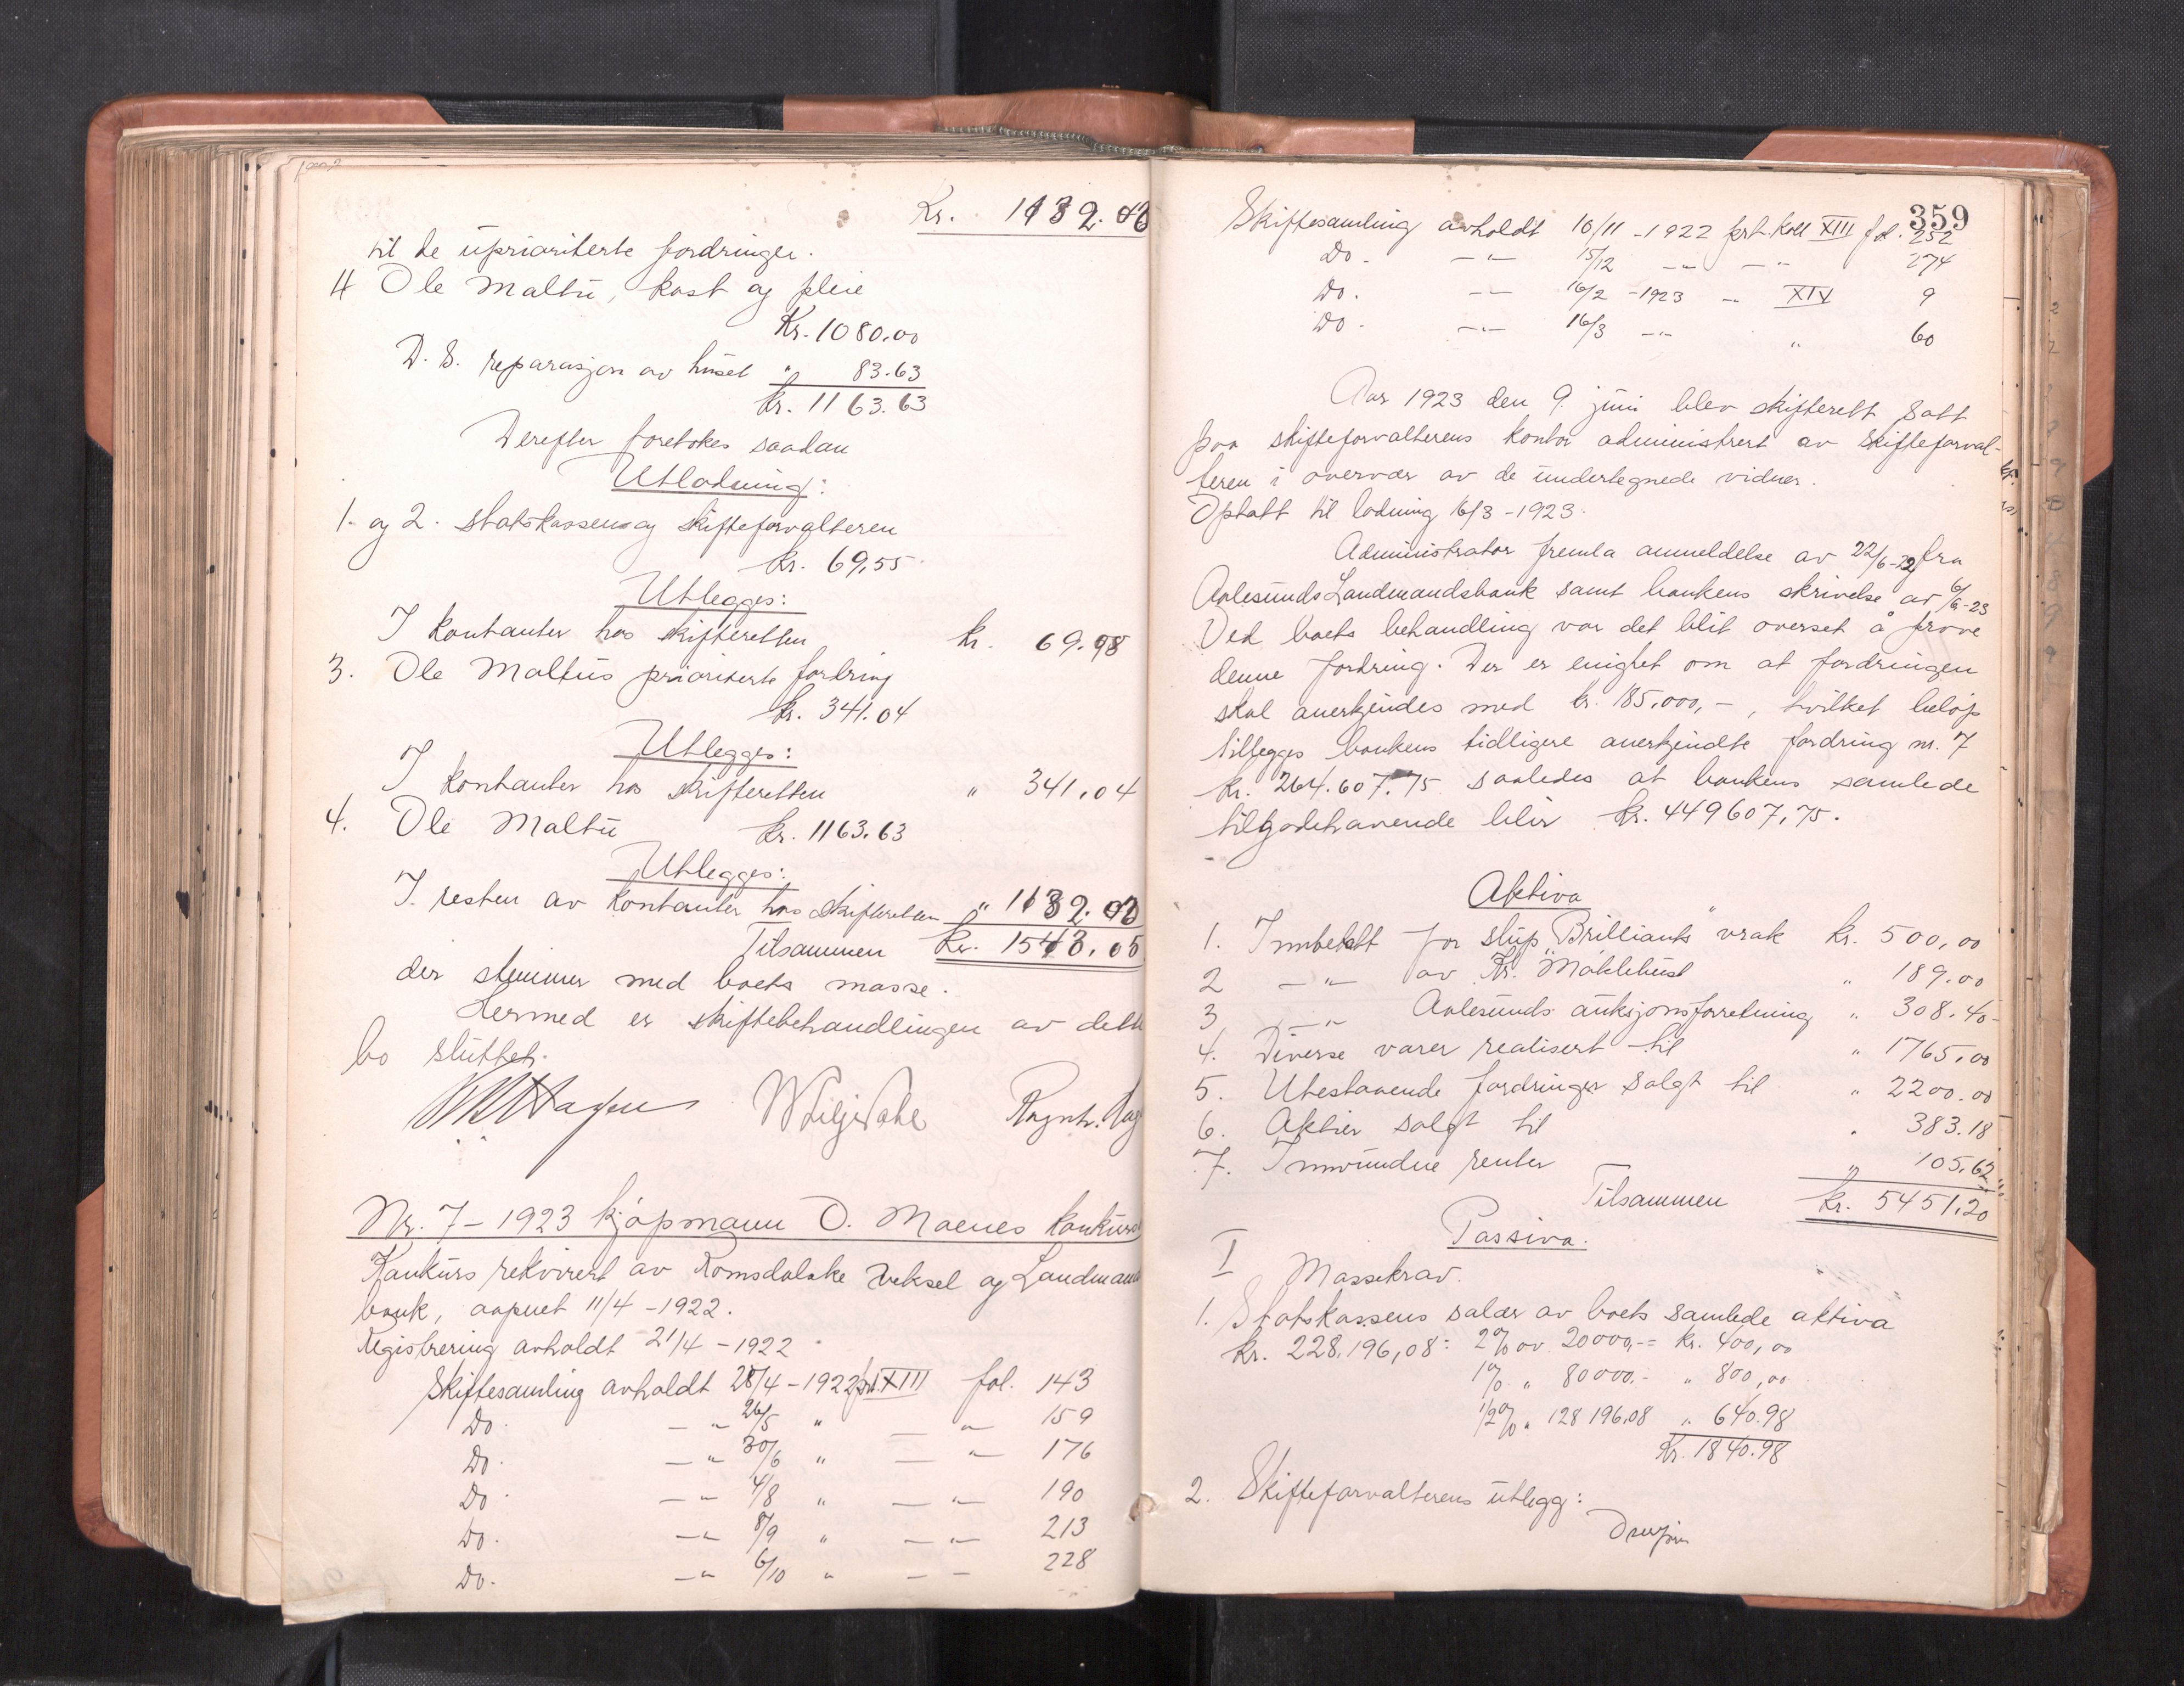 Kr. 1132.06
til de uprioriterte fordringer.
4 Ole Maltu, kost og pleie
Kr. 1080.00
D. S. reparasjon av huset " 83.63
Kr. 1163.63
Derefter foretokes saadan
Utlodning:
1. og 2. statskassen og skifteforvalteren
Kr. 69,55
Utlegges:
I kontanter hos skifteretten kr. 69.98
3. Ole Maltus prioriterte fordring
kr. 341.04
Utlegges:
I kontanter hos skifteretten " 341,04
4. Ole Maltu kr. 1163.63
Utlegges:
I resten av kontanter hos skifteretten " 1132.03
Tilsammen Kr. 1543.05
der stemmer med boets masse.
Hermed er skiftebehandlingen av dette
bo sluttet.
Ragnh.
Nr. 7 - 1923 kjøpmann O. Moenes konkurs
Konkurs rekvirert av Romsdalske Veksel og Landmands
bank, aapnet 11/4 - 1922.
Registrering avholdt 21/4 - 1922
Skiftesamling avholdt 28/4 - 1922 prt. XIII fol. 143
Do. — " 26/5 " — " — 159
Do. — " 30/6 " — " — 176
Do. — " — 4/8 " — " — 190
Do. — " — 8/9 " — " — 213
Do. — " 6/10 " — — 228
359
Skiftesamling avholdt 10/11 - 1922 prt. koll XIII fol. 252
Do. — " — 15/12 — " — — " — 274
Do. — " — 16/2 - 1923 — " — XIV 9
Do. — " — 16/3 — " — " 60
Aar 1923 den 9. juni blev skifterett satt
paa skifteforvalterens kontor administrert av skifteforval-
teren i overvær av de undertegnede vidner.
Optatt til lodning 16/3 - 1923.
Administrator fremla anmeldelse av 22/6-22 fra
Aalesunds Landmandsbank samt bankens skrivelse av 6/6-23
Ved boets behandling var det blit overset å prøve
denne fordring. Der er enighet om at fordringen
skal anerkjendes med kr. 185.000,-, hvilket beløp
tillegges bankens tidligere anerkjendte fordring nr. 7
kr. 264.607.75 saaledes at bankens samlede
tilgodehavende blir kr. 449607,75.
Aktiva
1. Innbetalt for slup "Brilliants" vrak kr. 500,00
2 — " — av Kr. Møklebust " 189.00
3 — " Aalesunds auksjonsforretning " 308.40-
4. Diverse varer realisert til " 1765,00
5. Utestaaende fordringer solgt til " 2200.00
6. Aktier solgt til " 383.18
7. Innvundne renter " 105,62
Tilsammen kr. 5451,20
Passiva.
I Massekrav.
1. Statskassens salær av boets samlede aktiva
kr. 228.196,08: 2% av 20000,- = kr. 400,00
1% " 80000.- " 800,00
1/2% " 128196.08 " 640.98
Kr. 1840.98
2. Skifteforvalterens utlegg: